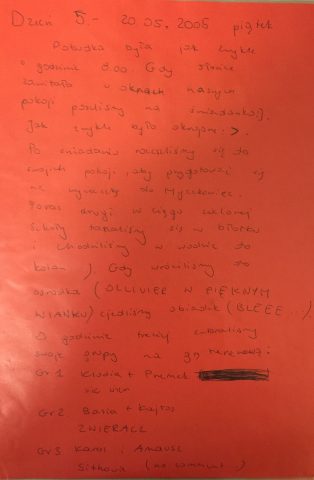 Dzień 5.- 20.05.2005 piątek
Pobudka była jak zwykle
o godzinie 8.00. Gdy słońce
zawitało w oknach naszych
pokoi poszliśmy na śniadanko:].
Jak zwykle było okropne :>.
Po śniadaniu rozeszliśmy się do
swoich pokoi, aby przygotować się
na wycieczkę do Myczkowiec.
Poraz drugi w ciągu zielonej
szkoły taplaliśmy się w błotku
i chodziliśmy w wodzie do
kolan :). Gdy wróciliśmy do
ośrodka (OLLIVIEE W PIĘKNYM
WIANKU) zjedliśmy obiadek (BLEEE...)
O godzinie trzeciej zebraliśmy
swoje grupy na grę terenową:
Gr1 Klodia +
nic wień
Gr2 Basia + Kajtos
ZWIERACZ
Gr3 Karol i